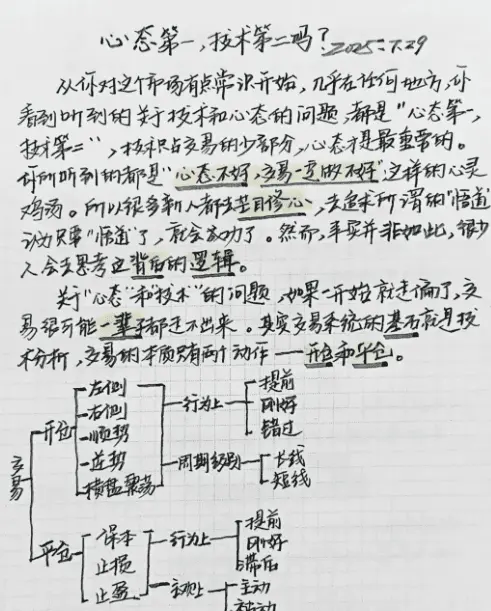 心态第一,技术第二吗? 2025.7.29
从你对这个市场有点常识开始,几乎在任何地方,你
看到听到的关于技术和心态的问题,都是"心态第一,
技术第二",技术只占交易的少部分,心态才是最重要的。
你所听到的都是"心态不好,交易一定做不好"这样的心灵
鸡汤。所以很多新人都去盲目修心,去追求所谓的"悟道"
认为只要"悟道"了,就会成功了。然而,事实并非如此,很少
人会去思考它背后的逻辑。
关于"心态"和技术"的问题,如果一开始就走偏了,交
易很可能一辈子都走不出来。其实交易系统的基石就是技
术分析,交易的本质只有两个动作——开仓和平仓。
交易
开仓
左侧
右侧
顺势
逆势
横盘震荡
行为上
提前
刚好
错过
周期级别
长线
短线
平仓
保本
止损
止盈
行为上
提前
刚好
滞后
主观上
主动
被动